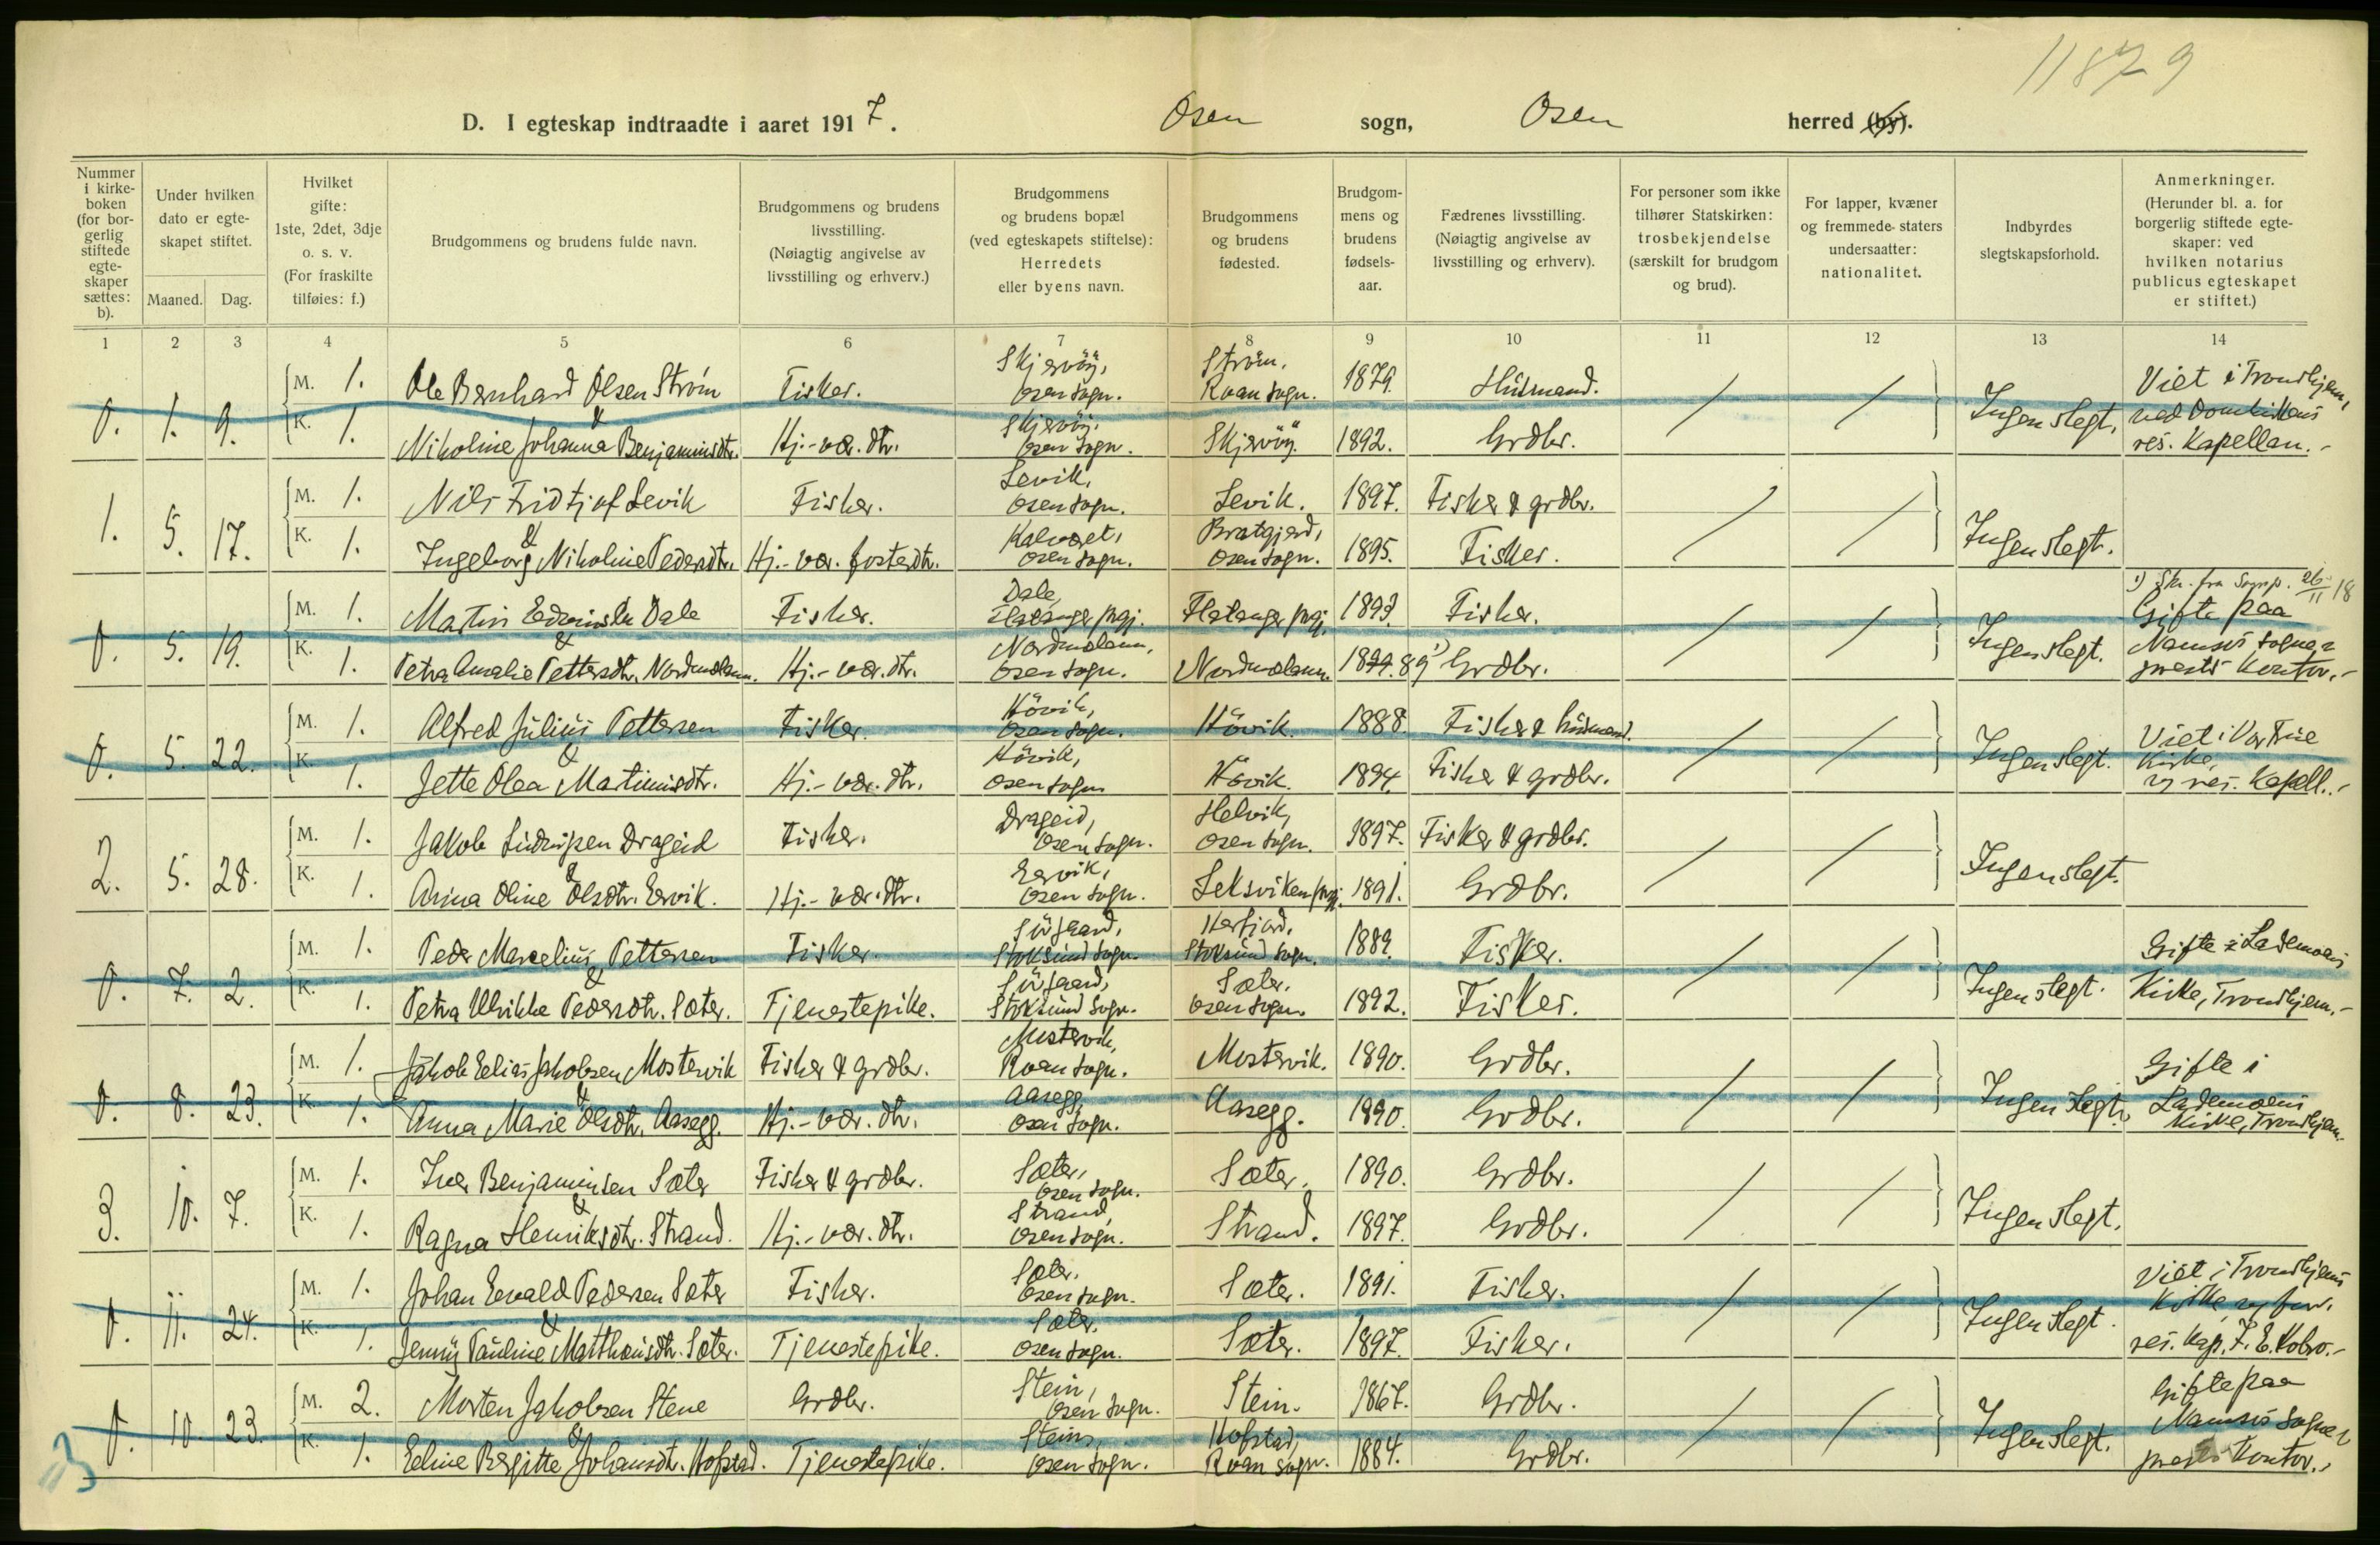 11879
D. I egteskap indtraadte i aaret 1917. Osen sogn, Osen herred (by).
Nummer i kirke-boken (for bor-gerlig stiftede egte-skaper sættes: b).
Under hvilken dato er egte-skapet stiftet.
Maaned. Dag.
Hvilket gifte: 1ste, 2det, 3dje o. s. v. (For fraskilte tilføies: f.)
Brudgommens og brudens fulde navn.
Brudgommens og brudens livsstilling. (Nøiagtig angivelse av livsstilling og erhverv.)
Brudgommens og brudens bopæl (ved egteskapets stiftelse): Herredets eller byens navn.
Brudgommens og brudens fødested.
Brudgom-mens og brudens fødsels-aar.
Fædrenes livsstilling. (Nøiagtig angivelse av livsstilling og erhverv).
For personer som ikke tilhører Statskirken: trosbekjendelse (særskilt for brudgom og brud).
For lapper, kvæner og fremmede staters undersaatter: nationalitet.
Indbyrdes slegtskapsforhold.
Anmerkninger. (Herunder bl. a. for borgerlig stiftede egte-skaper: ved hvilken notarius publicus egteskapet er stiftet.)
1 2 3 4 5 6 7 8 9 10 11 12 13 14
0. 1. 9. M. 1. Ole Bernhard Olsen Strøm Fisker. Skjervöy, Osen sogn. Ström, Roan sogn. 1879. Husmand. / / Ingen slegt. Viet i Trondhjem, ved Domkirkens res. Kapellan.-
& K. 1. Nikoline Johanna Benjaminsdtr. Hj.-vær. dtr. Skjervöy, Osen sogn. Skjervöy. 1892. Grdbr.
1. 5. 17. M. 1. Nils Fridtjof Sevik Fisker. Sevik, Osen sogn. Sevik. 1897. Fisker & grdbr. / / Ingen slegt.
& K. 1. Ingeborg Nikoline Pedersdtr. Hj.-vær. fosterdtr. Kalværet, Osen sogn. Bratgjerd, Osen sogn. 1895. Fisker.
0. 5. 19. M. 1. Martin Edvinsen Dale Fisker. Dale, Flatanger prgj. Flatanger prgj. 1893. Fisker. / / Ingen slegt. 1) Skr. fra Sognepr. 26/11 18 Gifte paa Namsos sogne-prests Kontor.-
& K. 1. Petra Amalie Pettersdtr. Nordmelan. Hj.-vær. dtr. Nordmelan, Osen sogn. Nordmelan. 1899. 89 1) Grdbr.
0. 5. 22. M. 1. Alfred Julius Pettersen Fisker. Hövik, Osen sogn. Hövik. 1888. Fisker & husmand. / / Ingen slegt. Viet i Vor Frue Kirke, av res. Kapell.-
& K. 1. Jette Olea Martinusdtr. Hj.-vær. dtr. Hövik, Osen sogn Hövik. 1894. Fisker & grdbr.
2. 5. 28. M. 1. Jakob Sivertsen Drageid Fisker. Drageid, Osen sogn. Helvik, Osen sogn. 1897. Fisker & grdbr. / / Ingen slegt.
& K. 1. Anna Oline Olsdtr. Ervik. Hj.-vær. dtr. Ervik, Osen sogn. Leksviken prgj. 1891. Grdbr.
0. 7. 2. M. 1. Peder Marcelius Pettersen Fisker. Sörgaard, Stoksund sogn. Herfjord, Stoksund sogn. 1889. Fisker. / / Ingen slegt. Gifte i Lademoens Kirke, Trondhjem.-
& K. 1. Petra Ulrikke Pedersdtr. Sæter. Tjenestepike. Sörgaard, Stoksund sogn. Sæter, Osen sogn. 1892. Fisker.
0. 8. 23. M. 1. Jakob Elias Jakobsen Mostervik Fisker & grdbr. Mostervik, Roan sogn. Mostervik. 1890. Grdbr. / / Ingen slegt. Gifte i Lademoens Kirke, Trondhjem.
& K. 1. Anna Marie Olsdtr. Aasegg. Hj.-vær. dtr. Aasegg, Osen sogn. Aasegg. 1890. Grdbr.
3. 10. 7. M. 1. Iver Benjaminsen Sæter Fisker & grdbr. Sæter, Osen sogn. Sæter. 1890. Grdbr. / / Ingen slegt.
& K. 1. Ragna Henriksdtr. Strand. Hj.-vær. dtr. Strand, Osen sogn. Strand. 1897. Grdbr.
0. 11. 24. M. 1. Johan Evald Pedersen Sæter Fisker. Sæter, Osen sogn. Sæter. 1891. Fisker. / / Ingen slegt. Viet i Trondhjems Kirke av res. Kap.
& K. 1. Jenny Pauline Matthæusdtr. Sæter. Tjenestepike. Sæter, Osen sogn. Sæter. 1897. Fisker.
0. 10. 23. M. 2. Morten Jakobsen Stene Grdbr. Stein, Osen sogn. Stein. 1867. Grdbr. / / Ingen slegt. Gifte paa Namsos sogne-prests Kontor.-
& K. 1. Eline Bergitte Johansdtr. Hofstad. Tjenestepike. Stein, Osen sogn. Hofstad, Roan sogn. 1884. Grdbr.
3